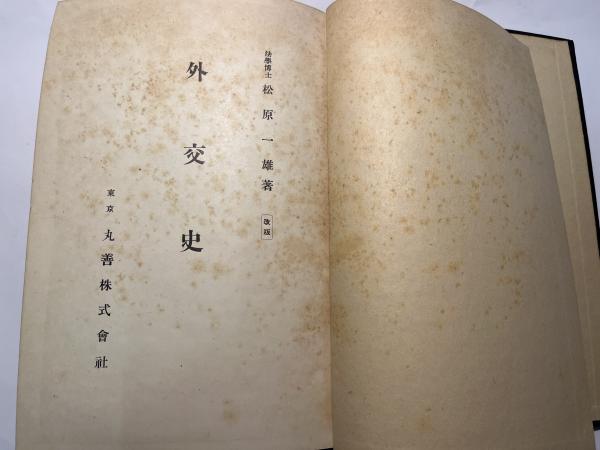 法學博士 松原一雄著 改版
外交史
東京 丸善株式會社